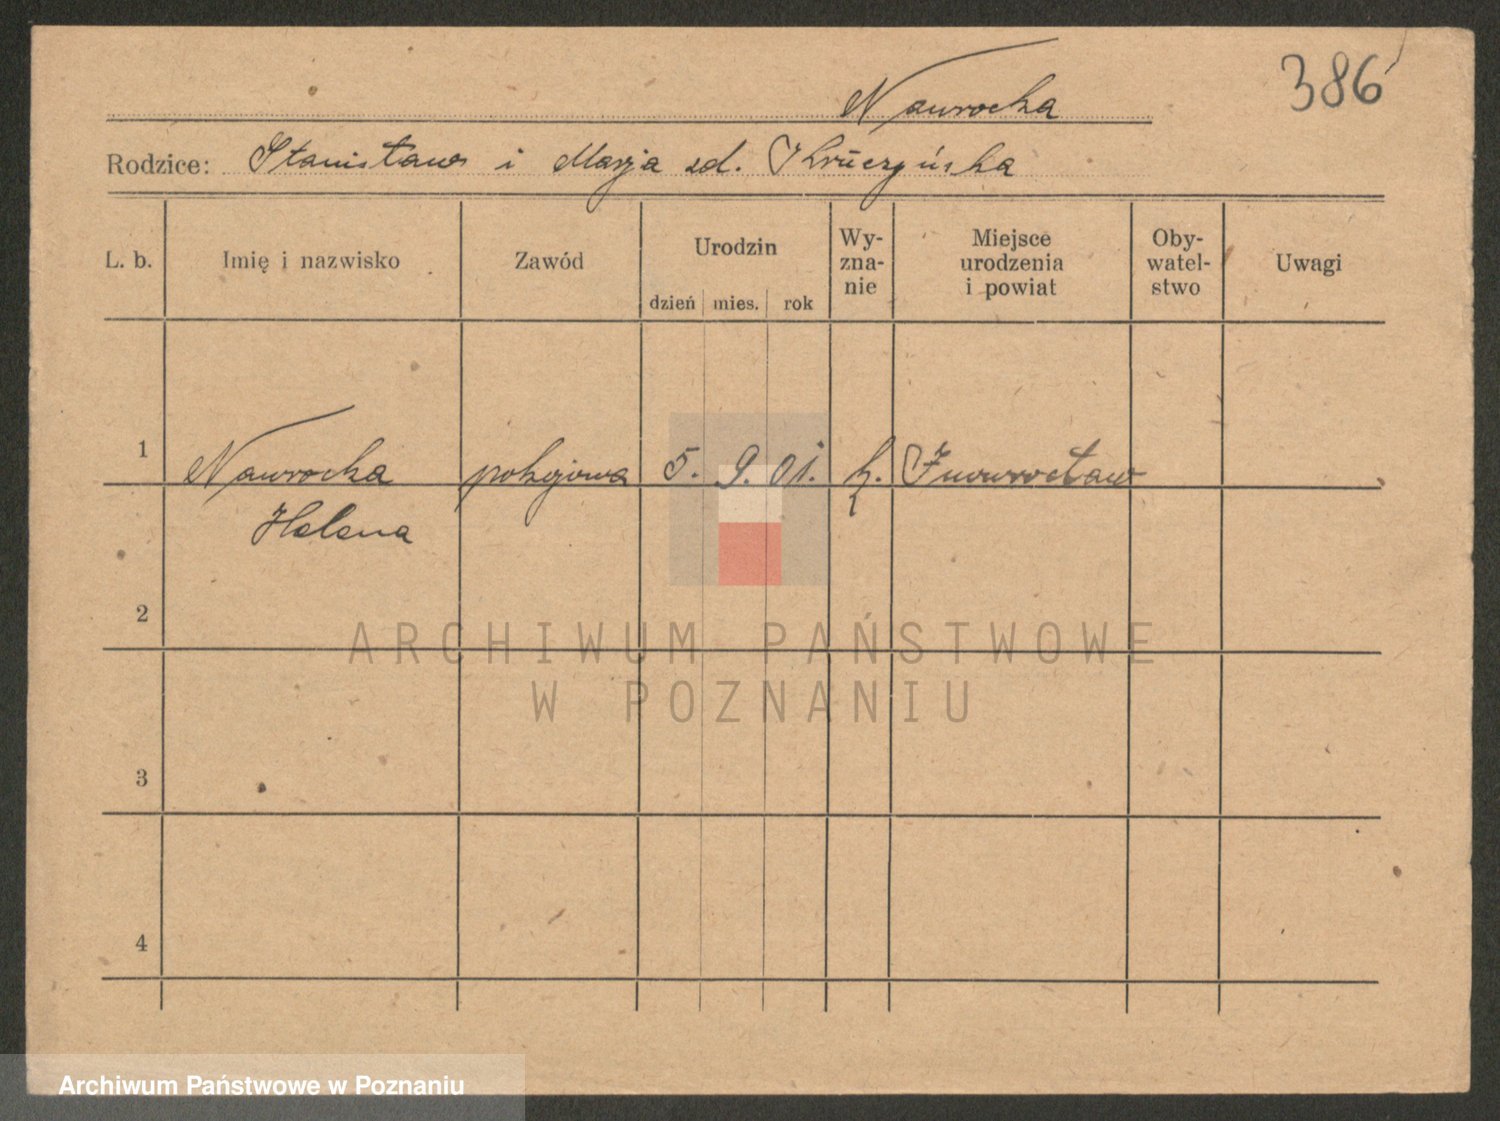 386
Nawrocka
Rodzice: Stanisław i Marja zd. Kruczyńska
L. b. Imię i nazwisko Zawód Urodzin dzień mies. rok Wy-zna-nie Miejsce urodzenia i powiat Oby-watel-stwo Uwagi
1 Nawrocka pokojowa 5. 9. 01. k. Inowrocław
Helena
2
ARCHIWUM PAŃSTWOWE
W POZNANIU
3
4
Archiwum Państwowe w Poznaniu